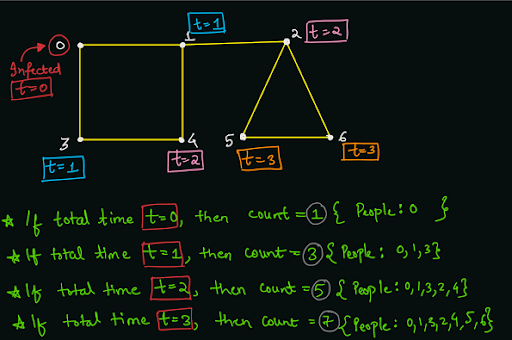 t=1
0
1
2
t=2
Infected
t=0
3
4
5
6
t=1
t=2
t=3
t=3
* If total time t=0, then count = 1 { People: 0 }
* If total time t=1, then count = 3 { People: 0,1,3}
* If total time t=2, then count = 5 { People: 0,1,3,2,4}
* If total time t=3, then count = 7 { People: 0,1,3,2,4,5,6}